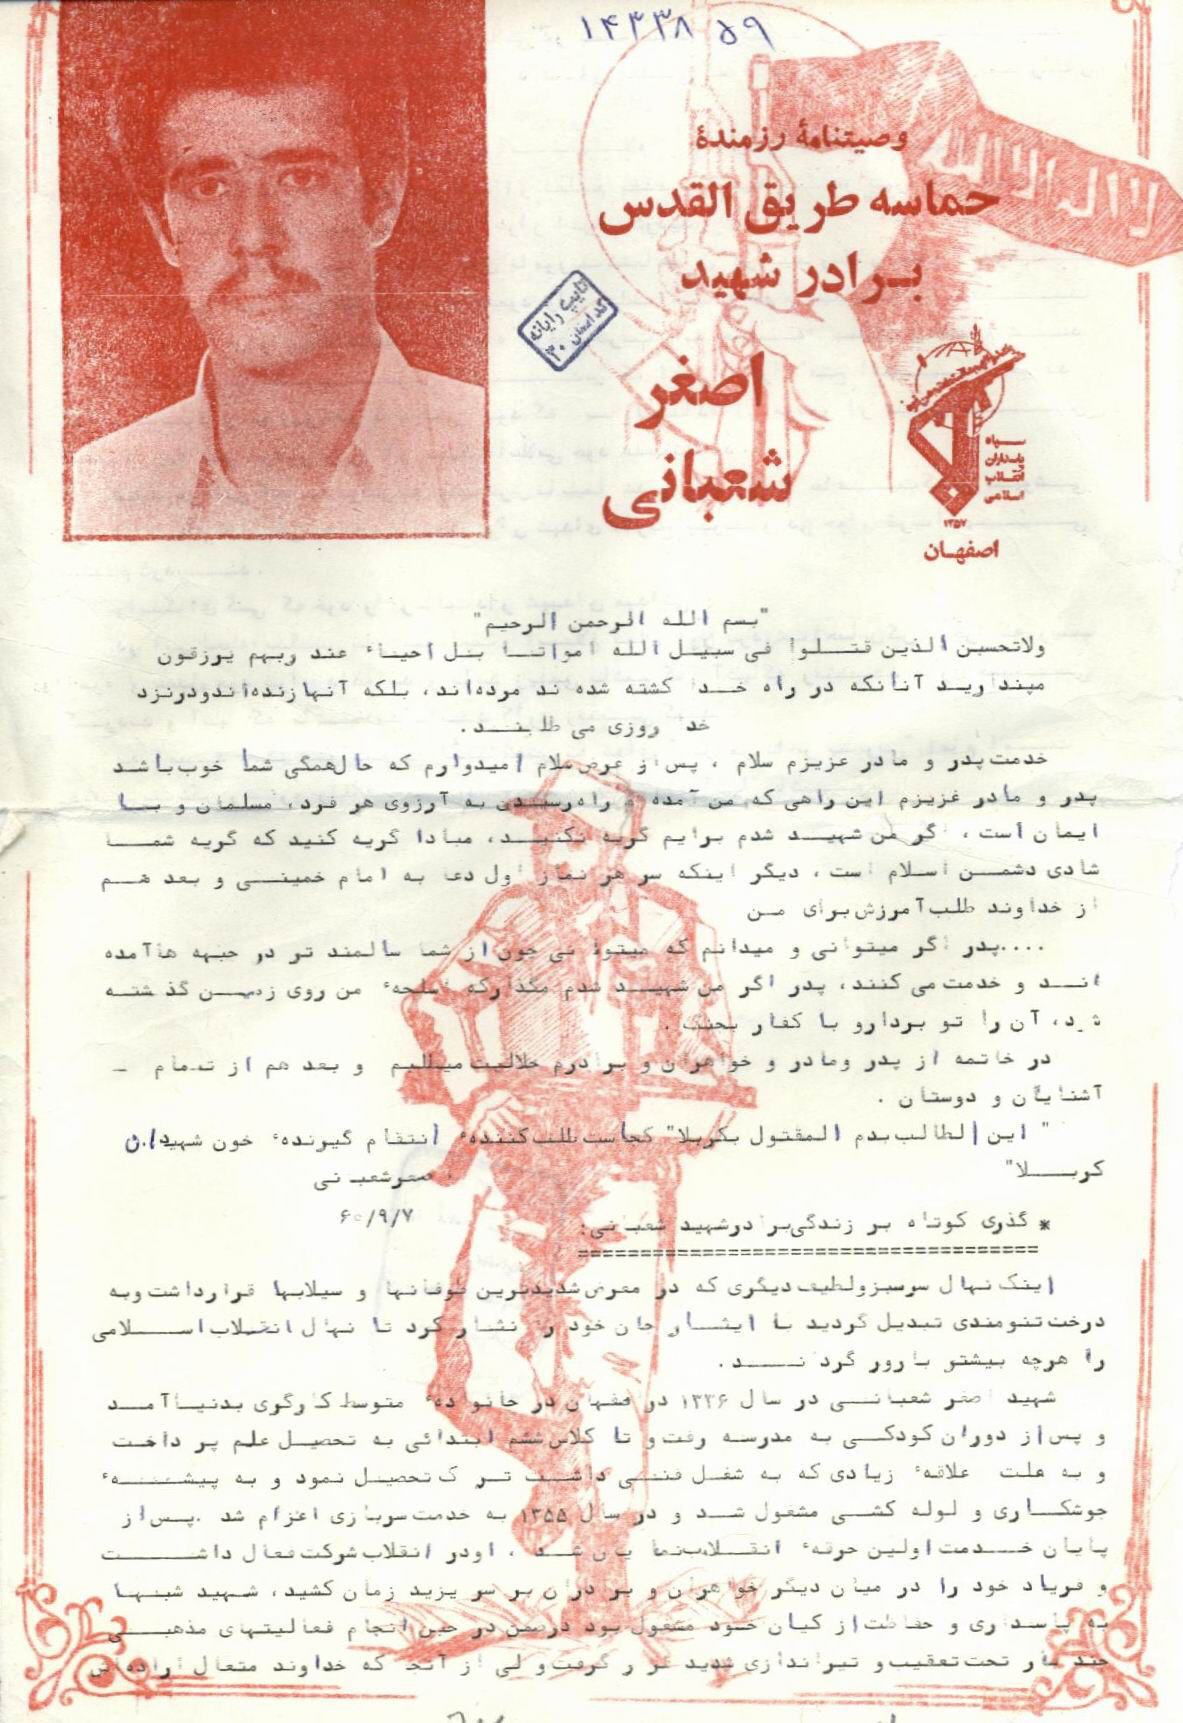 ۱۴۳۳۸۵۹
وصیتنامهٔ رزمندهٔ
حماسه طریق القدس
برادر شهید
اصغر
شعبانی
لااله الاالله
تایپ رایانه
کد استان ۳۰
سپاه
پاسداران
انقلاب
اسلامی
۱۳۵۷
اصفهان
"بسم الله الرحمن الرحیم"
ولاتحسبن الذین قتلوا فی سبیل الله امواتا بل احیاء عند ربهم یرزقون
مپندارید آنانکه در راه خدا کشته شده ند مرده‌اند، بلکه آنها زنده‌اند ودرنزد
خد روزی می طلبند.
خدمت پدر و مادر عزیزم سلام ، پس از عرض سلام امیدوارم که حال همگی شما خوب باشد
پدر و مادر عزیزم این راهی که من آمده م راه رسیدن به آرزوی هر فرد، مسلمان و با
ایمان است ، اگر من شهید شدم برایم گریه نکنید، مبادا گریه کنید که گریه شما
شادی دشمن اسلام است ، دیگر اینکه سر هر نماز اول دعا به امام خمینی و بعد هم
از خداوند طلب آمرزش برای من
....پدر اگر میتوانی و میدانم که میتوا نی چون از شما سالمند تر در جبهه ها آمده
اند و خدمت می کنند، پدر اگر من شهید شدم مگذارکه اسلحهٔ من روی زمین گذشته
شود، آن را تو بردارو با کفار بجنگ .
در خاتمه از پدر ومادر و خواهران و برادرم حلالیت میطلبم و بعد هم از تمام -
آشنایان و دوستان .
" این الطالب بدم المقتول بکربلا" کجاست طلب کنندهٔ انتقام گیرندهٔ خون شهیدان
کربلا"
اصغر شعبانی
۶۰/۹/۷
* گذری کوتاه بر زندگی برادر شهید شعبانی:
==================================
اینک نهال سرسبز ولطیف دیگری که در معرض شدیدترین طوفانها و سیلابها قرارداشت وبه
درخت تنومندی تبدیل گردید با ایثار جان خود را نثار کرد تا نهال انقلاب اسلامی
را هرچه بیشتو بارور گرداند.
شهید اصغر شعبانی در سال ۱۳۳۶ در اصفهان در خانوادهٔ متوسط کارگری بدنیا آمد
و پس از دوران کودکی به مدرسه رفت و تا کلاس ششم ابتدائی به تحصیل علم پرداخت
و به علت علاقهٔ زیادی که به شغل فنی داشت ترک تحصیل نمود و به پیشهٔ
جوشکاری و لوله کشی مشغول شد و در سال ۱۳۵۵ به خدمت سربازی اعزام شد .پس از
پایان خدمت اولین جرقهٔ انقلاب نمایان شد ، اودر انقلاب شرکت فعال داشت
و فریاد خود را در میان دیگر خواهران و برادران بر سر یزید زمان کشید، شهید شبها
به پاسداری و حفاظت از کیان خود مشغول بود درضمن در حین انجام فعالیتهای مذهبی
چند بار تحت تعقیب و تیراندازی شدید قرار گرفت ولی از آنجا که خداوند متعال اراده‌اش